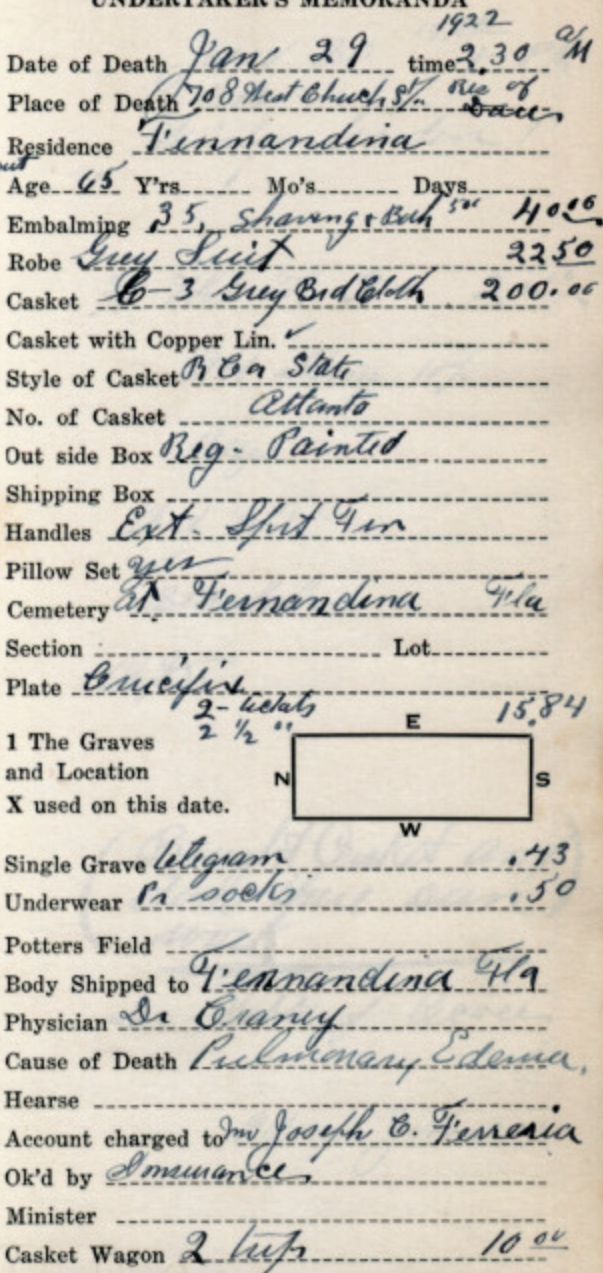 UNDERTAKER'S MEMORANDA
1922
Date of Death Jan 29 time 2.30 a/M
Place of Death 708 West Church St. Res of
Residence Fennandina
Age 65 Y'rs Mo's Days
Embalming 35, Shaving & Bath 5 00 40 00
Robe Grey Suit 22 50
Casket C-3 Grey Brd Cloth 200.00
Casket with Copper Lin. ✓
Style of Casket State
No. of Casket Atlanta
Out side Box Reg - Painted
Shipping Box
Handles Ext.
Pillow Set yes
Cemetery at Fernandina Fla
Section Lot
Plate Crucifix
2 - tickets 15.84
2 1/2 "
E
1 The Graves
and Location
X used on this date.
N S
W
Single Grave telegram .43
Underwear Pr socks .50
Potters Field
Body Shipped to Fennandina Fla
Physician Dr Craney
Cause of Death Pulmonary Edema.
Hearse
Account charged to Mr Joseph C. Ferreria
Ok'd by Innsurance
Minister
Casket Wagon 2 trips 10 00